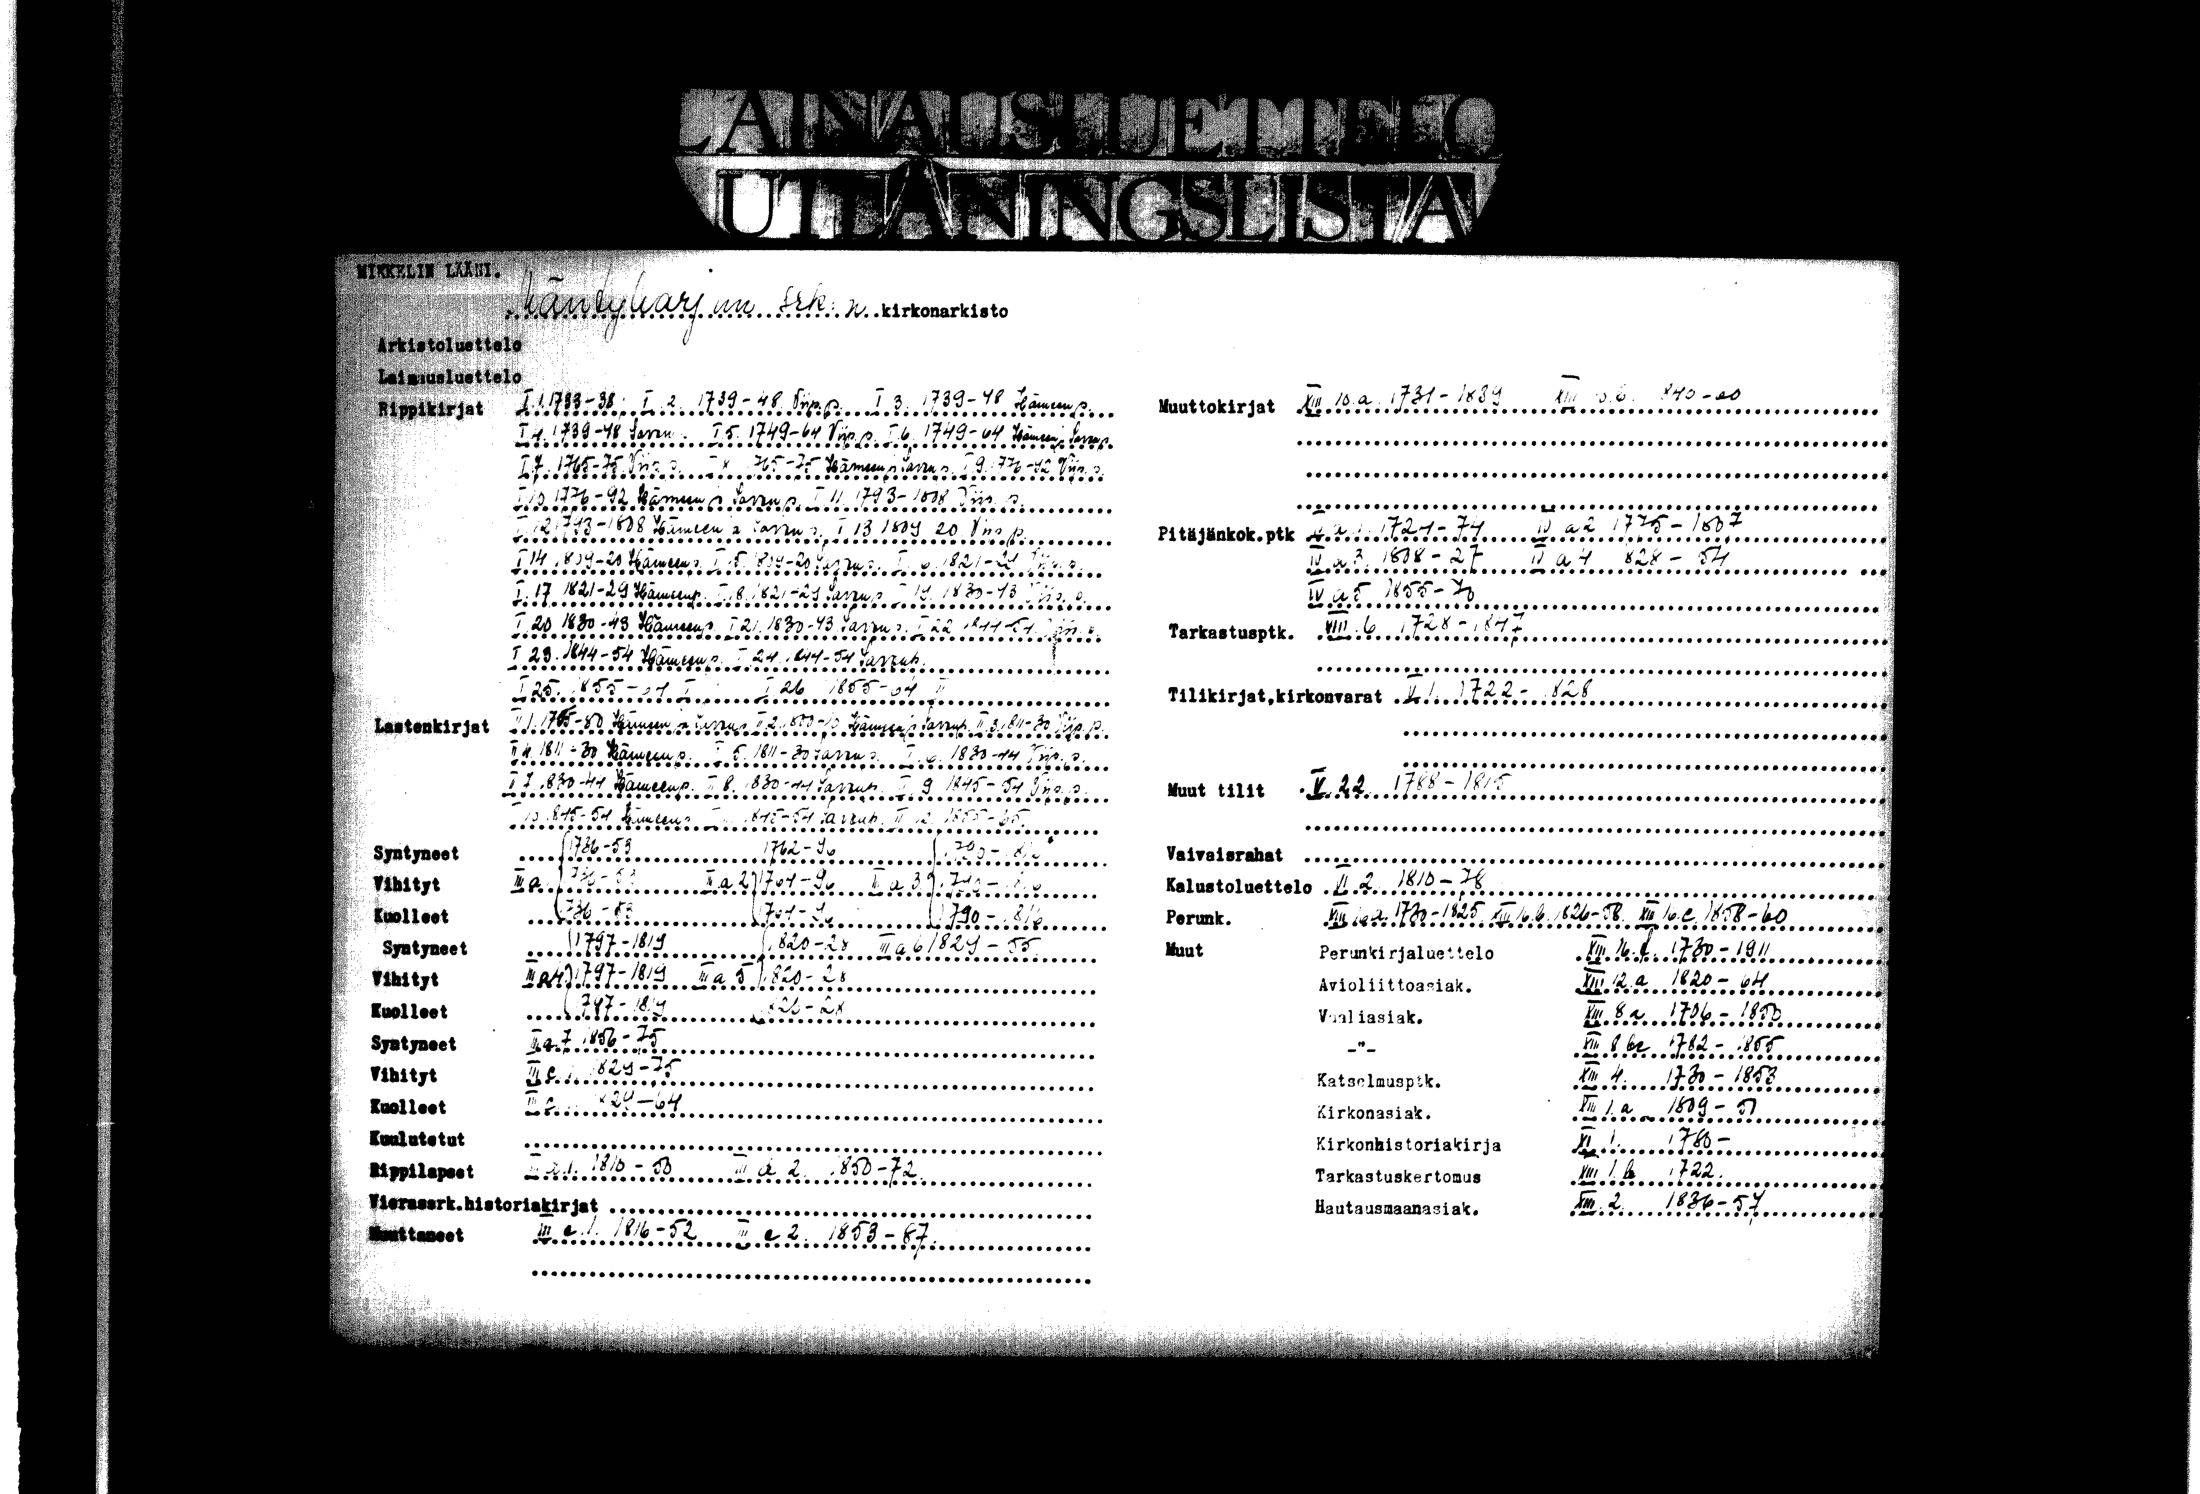 LAINAUSLUETTELO
UTLÅNINGSLISTA
MIKKELIN LÄÄNI.
Mäntyharjun srk:n kirkonarkisto
Arkistoluettelo
Lainausluettelo
Rippikirjat I 1. 1733-38. I 2. 1739-48 Viip.p. I 3. 1739-48 Hämeen p.
I 4. 1739-48 Savon I 5. 1749-64 Viip.p. I 6. 1749-64 Hämeen, Savon p.
I 7. 1765-75 Viip.p. I 8. 1765-75 Hämeen, Savon p. I 9. 1776-92 Viip.p.
I 10. 1776-92 Hämeen, Savon p. I 11. 1793-1808 Viip.p.
I 12. 1793-1808 Hämeen, Savon p. I 13 1809-20 Viip.p.
I 14. 1809-20 Hämeen p. I 15. 1809-20 Savon p. I 16. 1821-29 Viip.p.
I 17 1821-29 Hämeen p. I 18. 1821-29 Savon p. I 19. 1830-43 Viip.p.
I 20 1830-43 Hämeen p. I 21. 1830-43 Savon p. I 22 1844-54 Viip.p.
I 23. 1844-54 Hämeen p. I 24. 1844-54 Savon p.
I 25. 1855-64 I I 26 1855-64 II
Lastenkirjat II 1. 1785-80 Hämeen, Savon p. II 2. 1800-10 Hämeen, Savon p. II 3. 1811-30 Viip.p.
II 4. 1811-30 Hämeen p. II 5. 1811-30 Savon p. II 6. 1830-44 Viip.p.
II 7. 1830-44 Hämeen p. II 8. 1830-44 Savon p. II 9 1845-54 Viip.p.
II 10. 1845-54 Hämeen p. II 11. 1845-54 Savon p. II 12. 1855-65.
Syntyneet 1736-53 1762-96 1790-1816
Vihityt III a. 1736-53 III a 2 1764-96 III a 3. 1790-1816
Kuolleet 1736-53 1764-96 1790-1816
Syntyneet 1797-1819 1820-28 III a 6 1829-55
Vihityt III a 4 1797-1819 III a 5 1820-28
Kuolleet 1797-1819 1820-28
Syntyneet III a 7 1856-75
Vihityt III c. 1. 1829-75
Kuolleet 1829-64
Kuulutetut
Rippilapset 1. 1810-50 2. 1850-72
Vierassrk.historiakirjat
Muuttaneet III e. 1. 1816-52 III e 2. 1853-87.
Muuttokirjat XIII 10.a. 1731-1839 XIII 10.b. 1840-60
Pitäjänkok.ptk IV a 1. 1724-74 IV a 2 1775-1807
IV a 3. 1808-27 IV a 4 1828-54
IV a 5 1855-70
Tarkastusptk. VIII. 6. 1728-1847
Tilikirjat,kirkonvarat V. 1. 1722-1828
Muut tilit V. 22. 1788-1815
Vaivaisrahat
Kalustoluettelo VI. 2. 1810-78
Perunk. XIII 16.a. 1730-1825, XIII 16.b. 1826-58. XIII 16.c. 1858-60
Muut Perunkirjaluettelo XIII 16. d. 1730-1911
Avioliittoasiak. XIII 12.a 1820-64
Vaaliasiak. XIII 8a 1706-1850
-"- XIII 8 bc 1782-1855
Katselmusptk. XIII 4. 1730-1853
Kirkonasiak. XIII 1.a 1809-51
Kirkonhistoriakirja XI. 1. 1780-
Tarkastuskertomus XIII 1.b 1722.
Hautausmaanasiak. XIII. 2. 1836-57